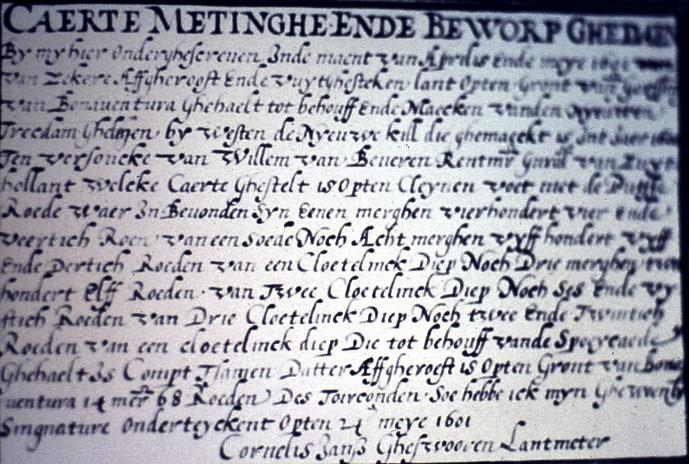 CAERTE METINGHE ENDE BEWORP GHEDAEN
By my hier Onderghescreven Inde maent van Aprilis Ende meye 1601
van Zekere Affgheroest Ende vuytghesteken lant Opten Gront van
van Bonaventura Ghehaelt tot behouff Ende Maecken vanden Nyeuwen
Treedam Ghedaen by westen de Nyeuwe kill die ghemaeckt is Int Jaer
Ten versoucke van Willem van Beveren Rentmr Gnrael van Zuyt
hollant welcke Caerte Ghestelt is Opten Cleynen voet met de
Roede waer In Bevonden Syn Eenen merghen vierhondert vier Ende
veertich Roen van een Soede Noch Acht merghen vyff hondert vyff
Ende Dertich Roeden van een Cloetelinck Diep Noch Drie merghen
hondert Elff Roeden van Twee Cloetelinck Diep Noch Ses Ende vy
ftich Roeden van Drie Cloetelinck Diep Noch twee Ende Twintich
Roeden van een cloetelinck diep Die tot behouff vande
Ghehaelt Is Compt Tsamen Datter Affgheroest is Opten Gront van Bona
ventura 14 mer 68 Roeden Des Toirconden Soe hebbe ick myn
Singnature Onderteyckent Opten meye 1601
Cornelis Janss Gheswooren Lantmeter